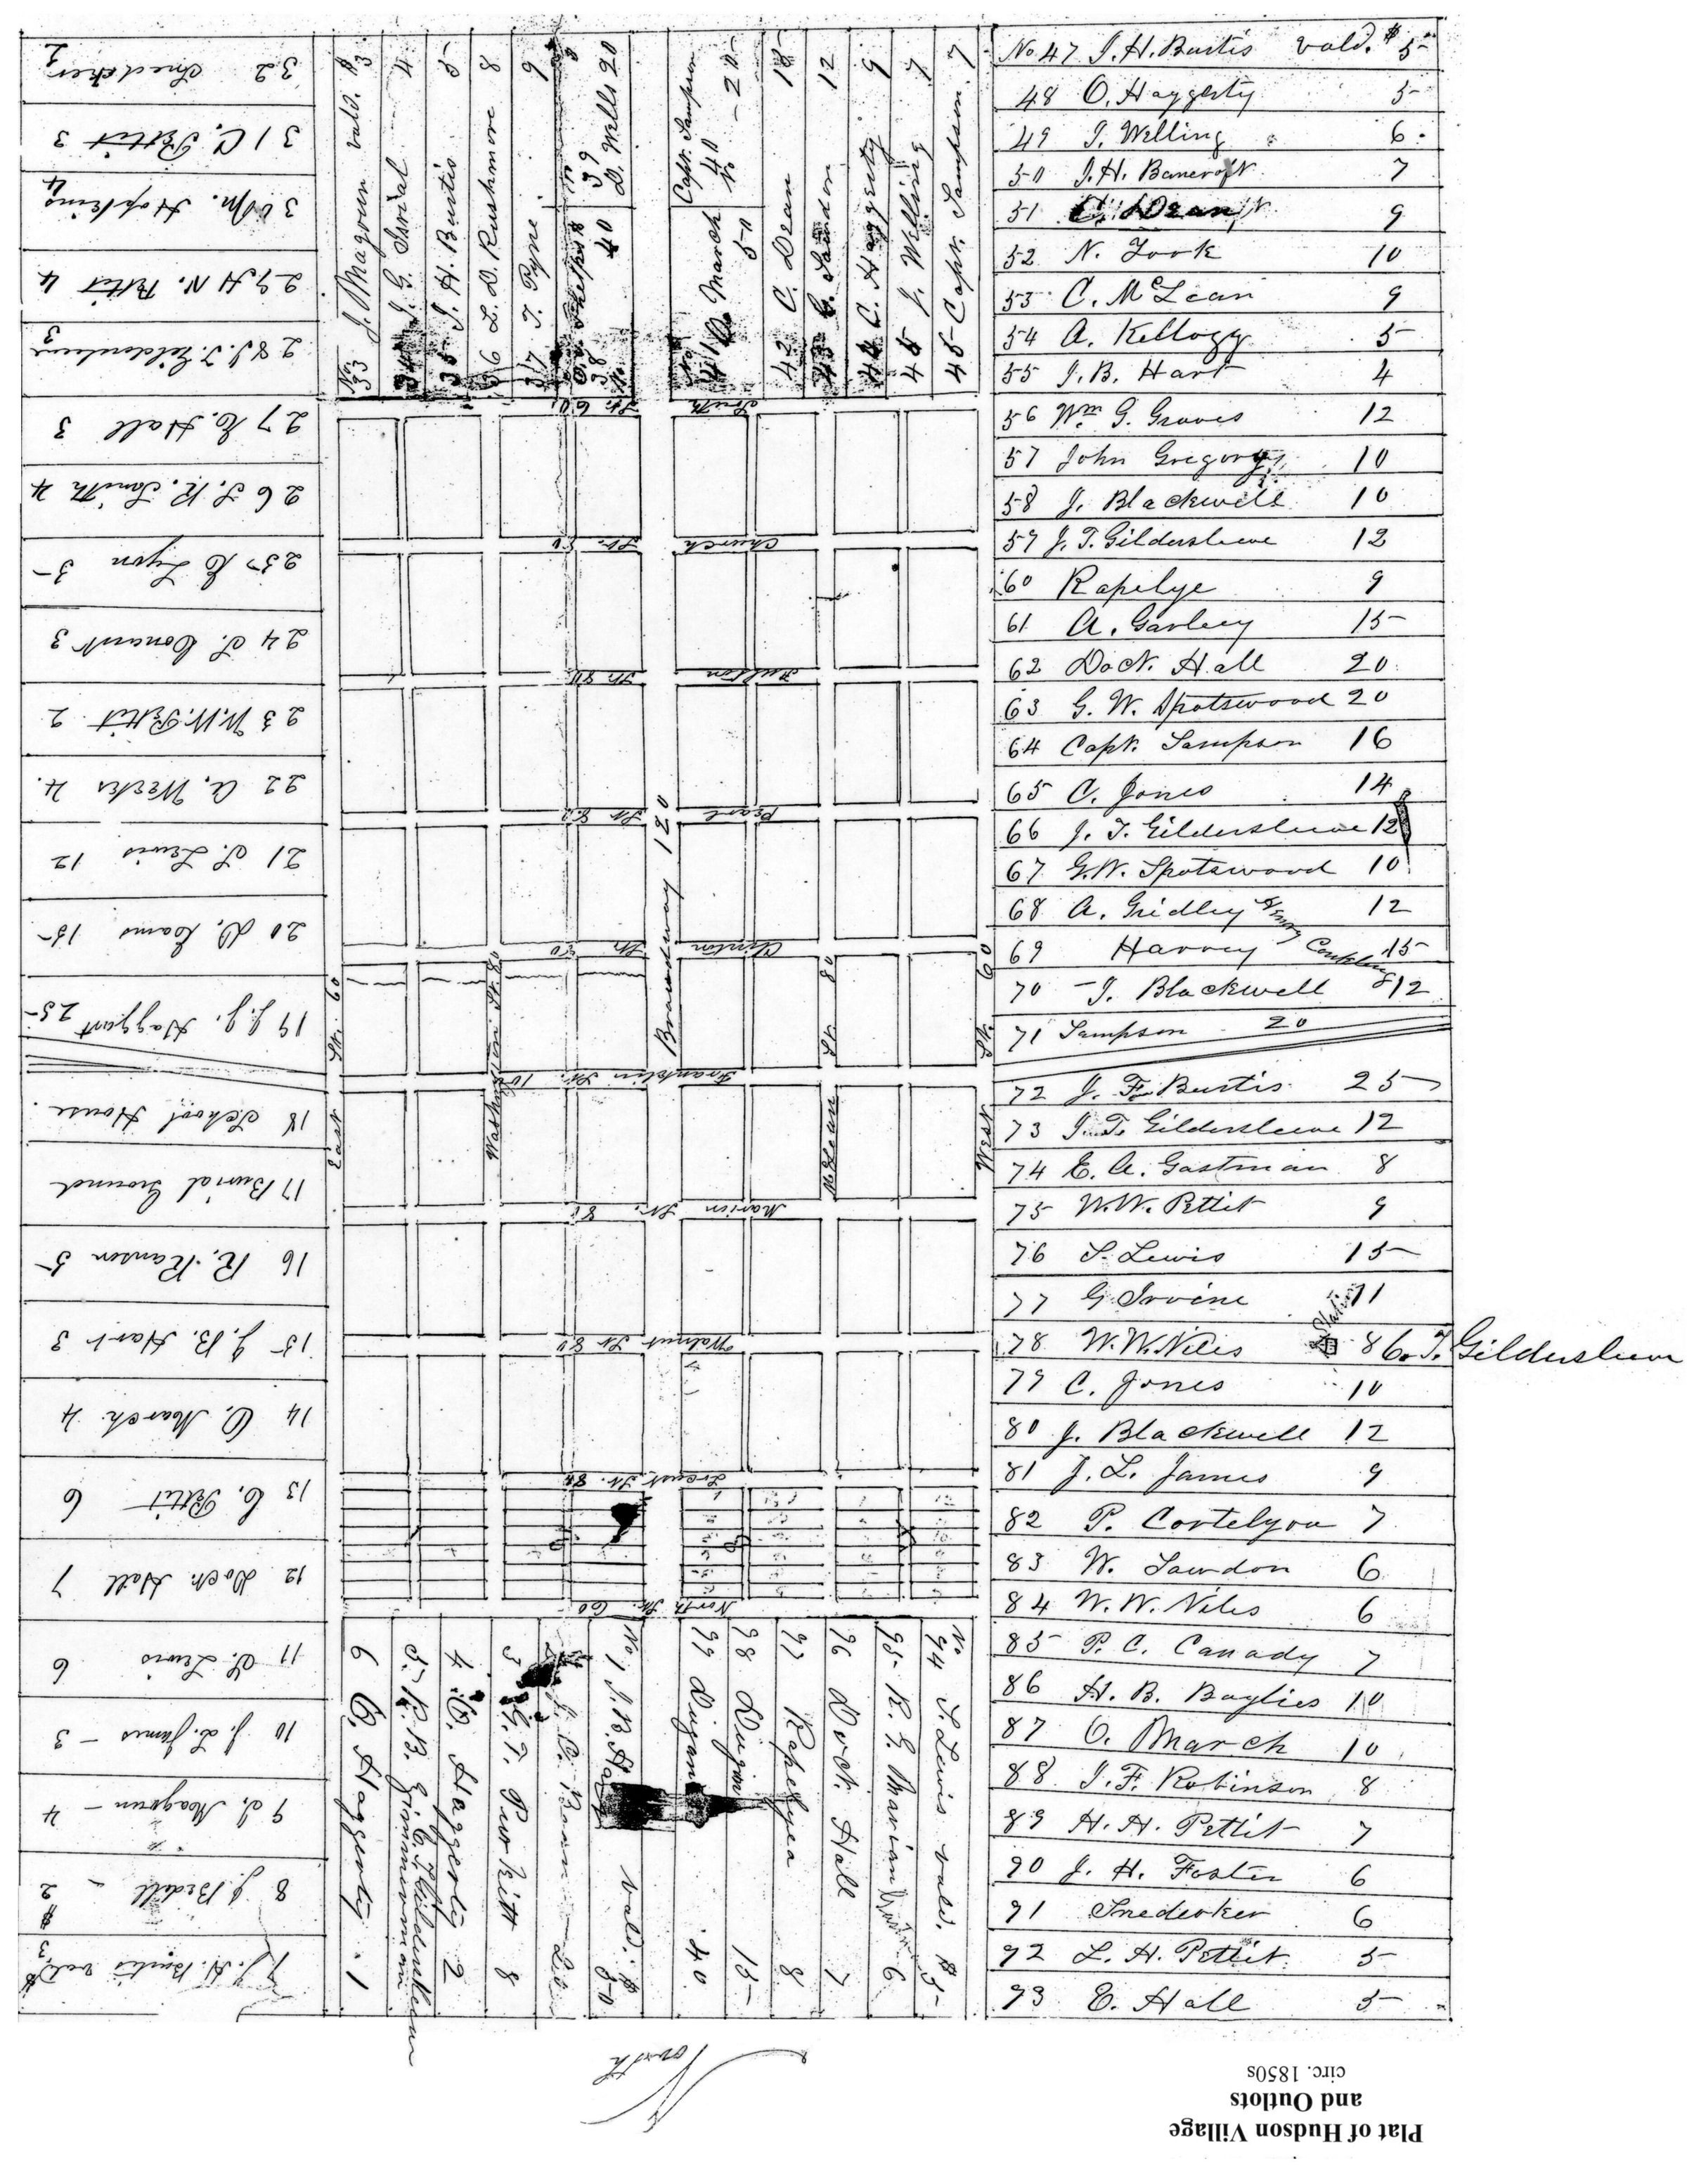 Plat of Hudson Village
and Outlots
circ. 1850s
North
No. 47 J. H. Burtis vald. $ 5
48 O. Haggerty 5
49 J. Welling 6
50 J. H. Bancroft 7
51 C. Dean 9
52 N. Took 10
53 C. McLean 9
54 A. Kellogg 5
55 J. B. Hart 4
56 Wm G. Graves 12
57 John Gregory 10
58 J. Blackwell 10
59 J. T. Gildersleeve 12
60 Rapelye 9
61 A. Garley 15
62 Doct. Hall 20
63 G. W. Spotswood 20
64 Capt. Sampson 16
65 C. Jones 14
66 J. T. Gildersleeve 12
67 G. W. Spotswood 10
68 A. Gridley 12
69 Harvey Conkling 15
70 J. Blackwell $12
71 Sampson 20
72 J. F. Burtis 25
73 J. T. Gildersleeve 12
74 E. A. Gastman 8
75 W. W. Pettit 9
76 S. Lewis 15
77 G Irvine 11
78 W. W. Niles 8 C. T. Gildersleeve
79 C. Jones 10
80 J. Blackwell 12
81 J. L. James 9
82 P. Cortelyou 7
83 W. Lawdon 6
84 W. W. Niles 6
85 P. C. Canady 7
86 H. B. Baylies 10
87 O. March 10
88 J. F. Robinson 8
89 H. H. Pettit 7
90 J. H. Foster 6
91 Snedeker 6
92 L. H. Pettit 5
93 E. Hall 5
No. 33 J. Magoun vald. $ 3
34 J. G. 4
35 J. H. Burtis 5
36 L. D. Rushmore 8
37 T. Pyne 9
38 40
39 D. Wells 20
No 40 Capt. Sampson 20
No 41 O. March 50
42 C. Dean 18
43 12
44 C. Haggerty 9
45 J. Welling 7
45 Capt. Sampson 7
South St. 60
Church St. 80
Fulton St. 80
Pearl St. 82
Clinton St. 80
Franklin St. 100
Marion St. 80
Walnut St. 80
Locust St. 80
North St. 60
East St. 60
Washington St. 80
Broadway 120
McLean St. 80
West St. 60
No. 94 S. Lewis vald. $ 5
95 R. E. Mavian 6
96 Doct. Hall 7
97 Rapelyea 8
98 Dugan 15
99 Dugan 40
No 1 J. B. Hart vald. $ 50
3 G. T. Purkitt 8
4 O. Haggerty 2
5 R. B. Zimmerman
C. T. Gildersleeve
6 O. Haggerty 1
7 J. H. Burtis vald. $ 3
8 J. Bedell 2
9 J. Magoun 4
10 J. L. James 3
11 S. Lewis 6
12 Doct. Hall 7
13 C. Pettit 6
14 O. March 4
15 J. B. Hart 3
16 R. Ranson 5
17 Burial Ground
18 School House
19 J. J. Haggart 25
20 D. Loams 15
21 S. Lewis 12
22 A. Weeks 4
23 W. W. Pettit 2
24 S. Conant 3
25 E Lyon 5
26 S. R. Smith 4
27 E. Hall 3
28 J. T. Gildersleeve 3
29 H N. Pettit 4
30 M. Hopkins 4
31 C. Pettit 3
32 Snedeker 2